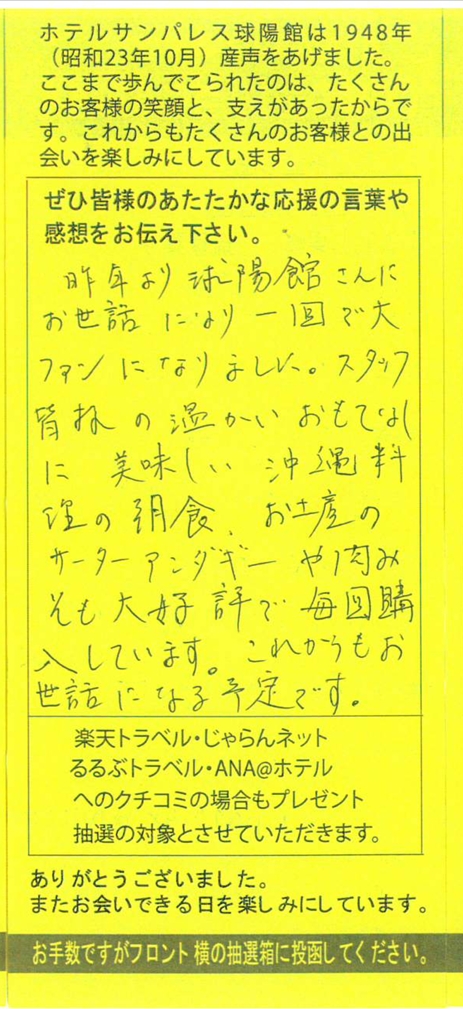 ホテルサンパレス球陽館は1948年
（昭和23年10月）産声をあげました。
ここまで歩んでこられたのは、たくさん
のお客様の笑顔と、支えがあったからで
す。これからもたくさんのお客様との出
会いを楽しみにしています。
ぜひ皆様のあたたかな応援の言葉や
感想をお伝え下さい。
昨年より球陽館さんに
お世話になり一回で大
ファンになりました。スタッフ
皆様の温かいおもてなし
に美味しい沖縄料
理の朝食、お土産の
サーターアンダギーや肉み
そも大好評で毎回購
入しています。これからもお
世話になる予定です。
楽天トラベル・じゃらんネット
るるぶトラベル・ANA@ホテル
へのクチコミの場合もプレゼント
抽選の対象とさせていただきます。
ありがとうございました。
またお会いできる日を楽しみにしています。
お手数ですがフロント横の抽選箱に投函してください。